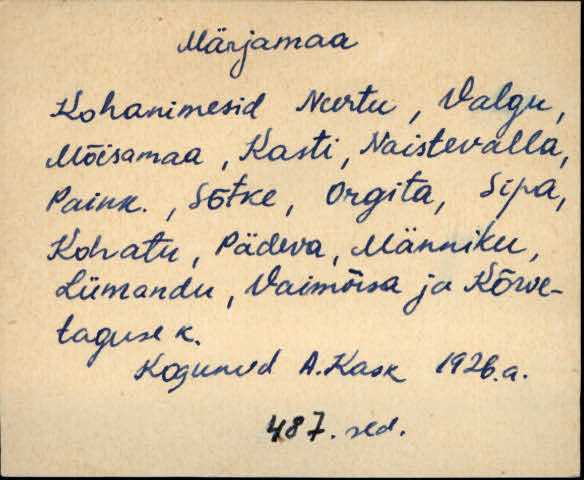 Märjamaa
Kohanimesid Nurtu, Valgu,
Mõisamaa, Kasti, Naistevalla,
Paink., Sõtke, Orgita, Sipa,
Kohatu, Pädeva, Männiku,
Liimandu, Vaimõisa ja Kõrve-
taguse k.
Kogunud A. Kask 1926.a.
487. sed.